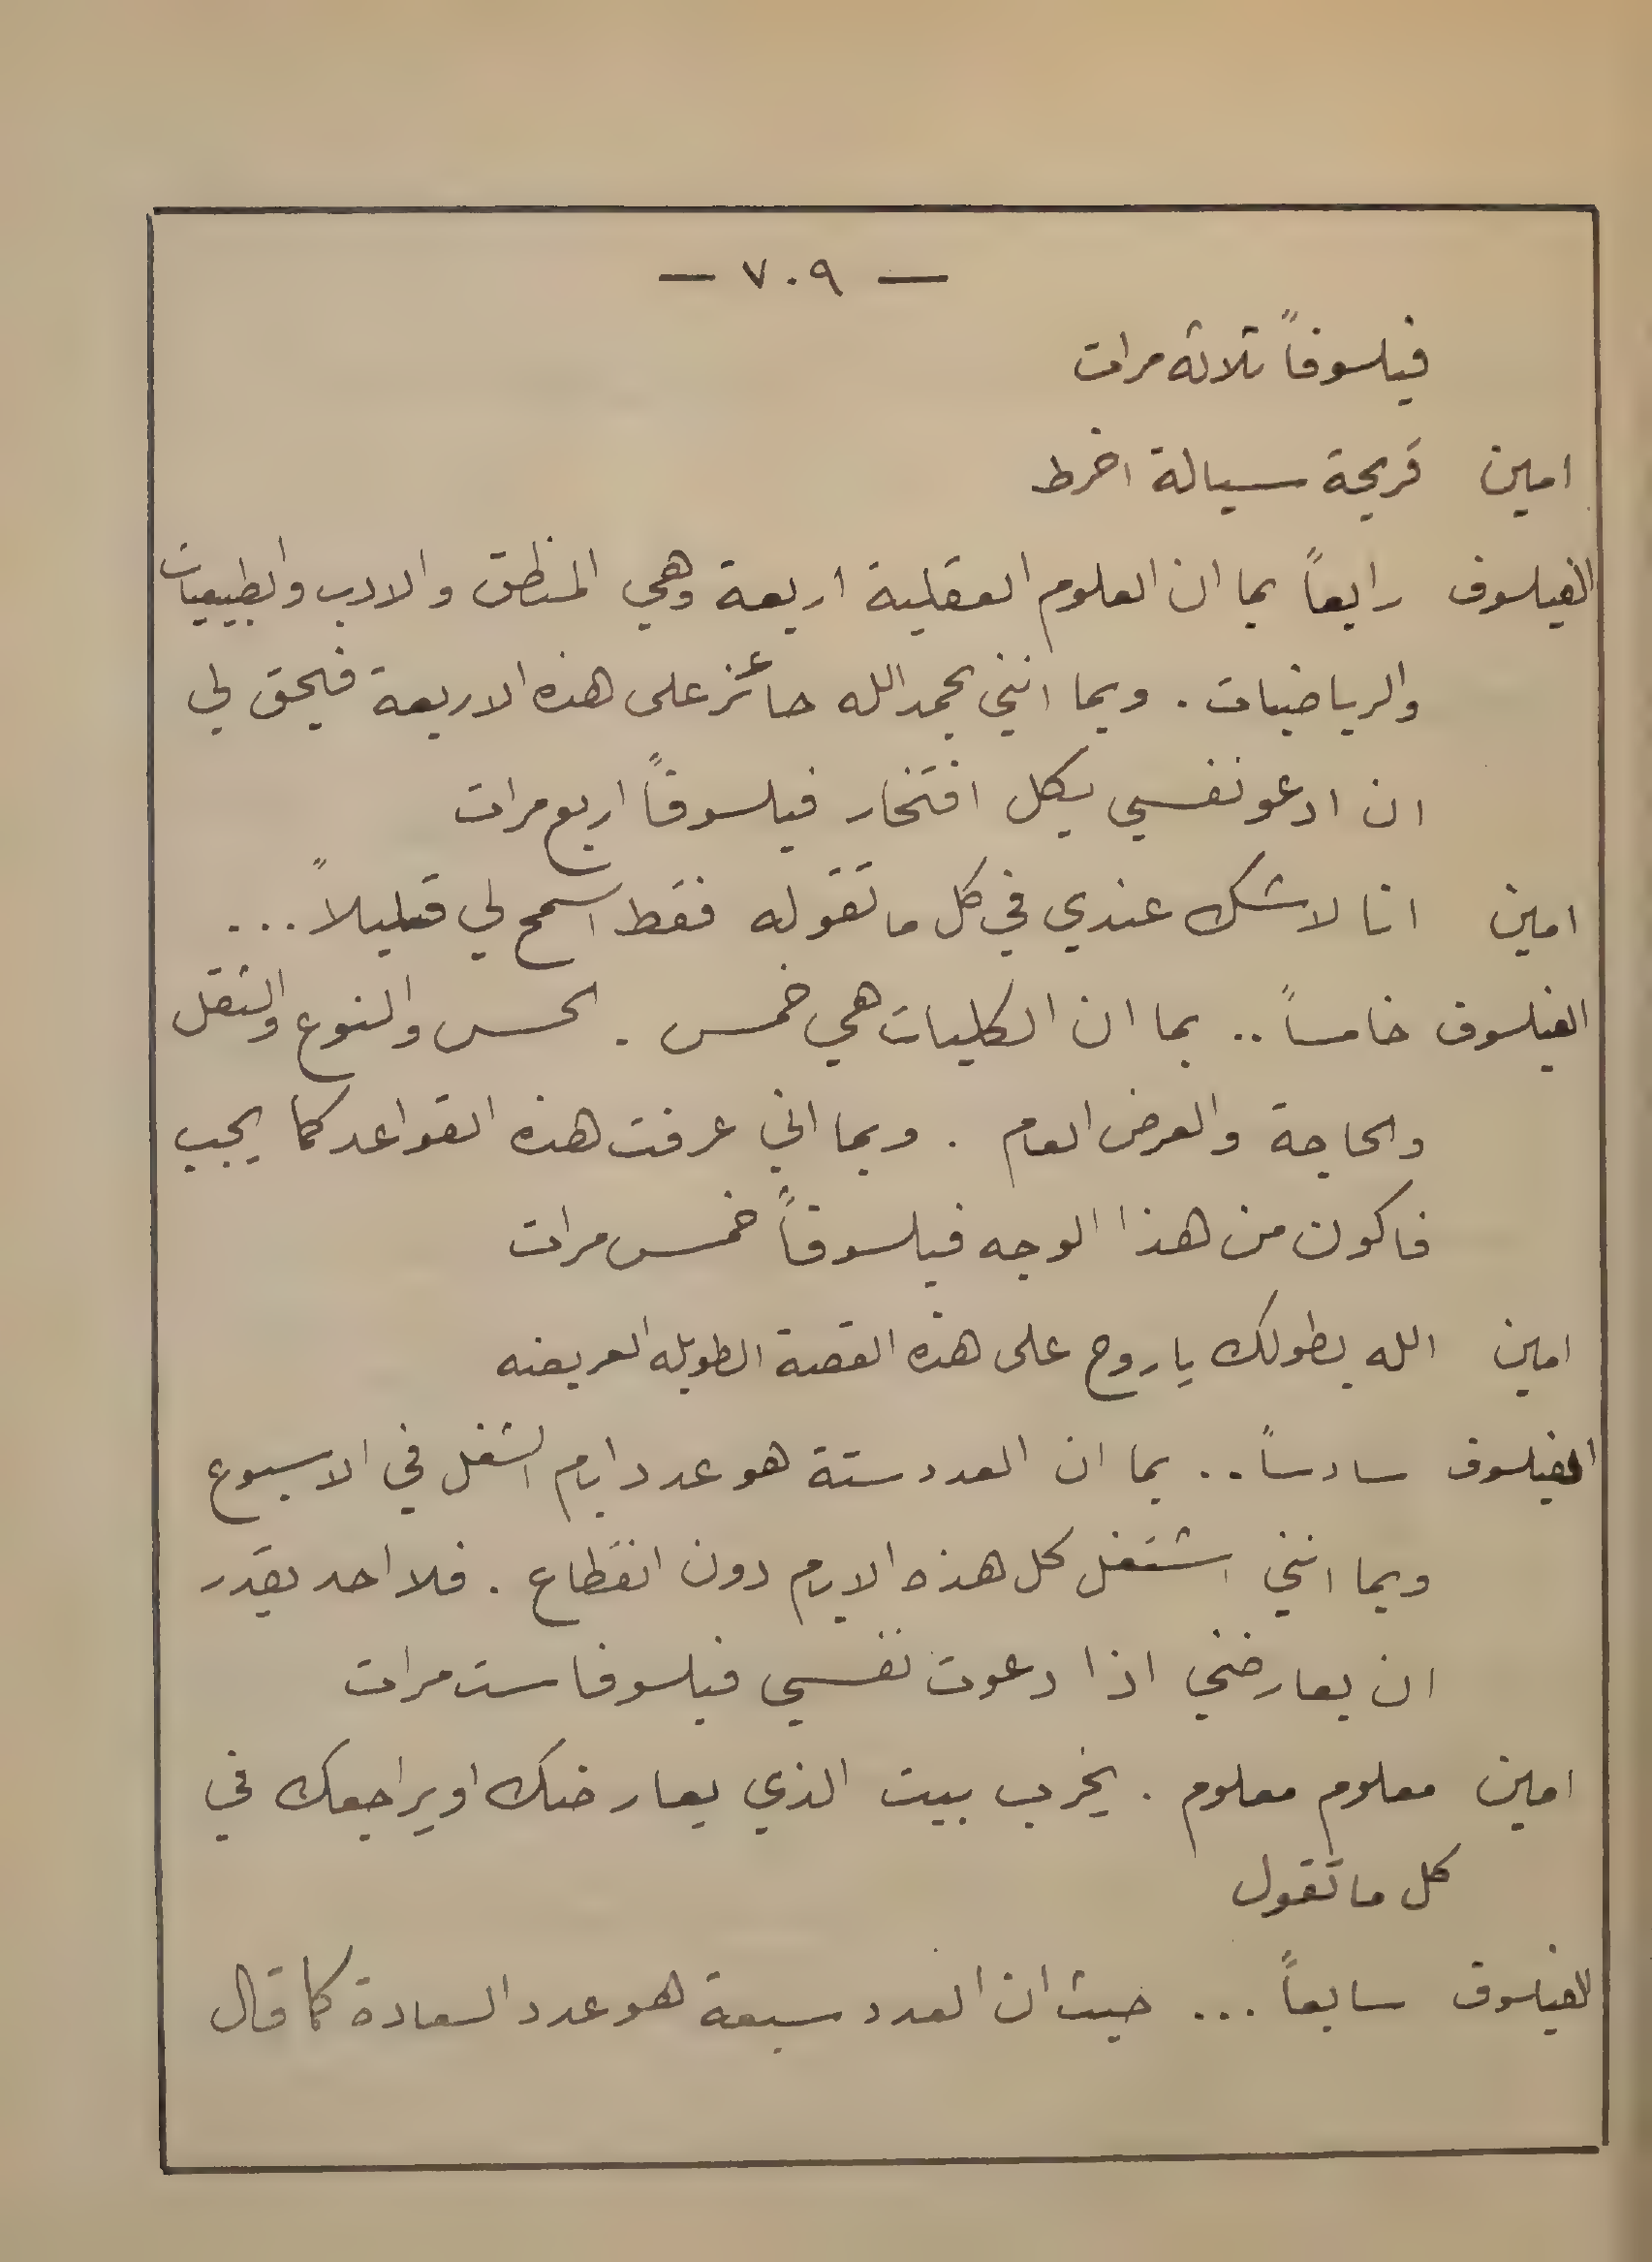 — ٧٠٩ —
فيلسوفاً ثلاثه مرات
امين قريحة سيالة اخرط
الفيلسوف رابعاً بما ان العلوم العقلية اربعة وهي المنطق والادب والطبيعيات
والرياضيات . وبما انني بحمد الله حائز على هذه الاربعة فيحق لي
ان ادعو نفسي بكل افتخار فيلسوفاً اربع مرات
امين انا لا شك عندي في كل ما تقوله فقط اسمح لي قليلاً ...
الفيلسوف خامساً .. بما ان الكليات هي خمس . الحس والنوع والثقل
والحاجة والعرض العام . وبما اني عرفت هذه القواعد كما يجب
فاكون من هذا الوجه فيلسوفاً خمس مرات
امين الله يطولك يا روح على هذه القصة الطويله العريضه
الفيلسوف سادساً .. بما ان العدد ستة هو عدد ايام الشغل في الاسبوع
وبما انني اشتغل كل هذه الايام دون انقطاع . فلا احد يقدر
ان يعارضني اذا دعوت نفسي فيلسوفا ست مرات
امين معلوم معلوم . يخرب بيت الذي يعارضك او يراجعك في
كل ما تقول
الفيلسوف سابعاً ... حيث ان العدد سبعة هو عدد السعادة كما قال